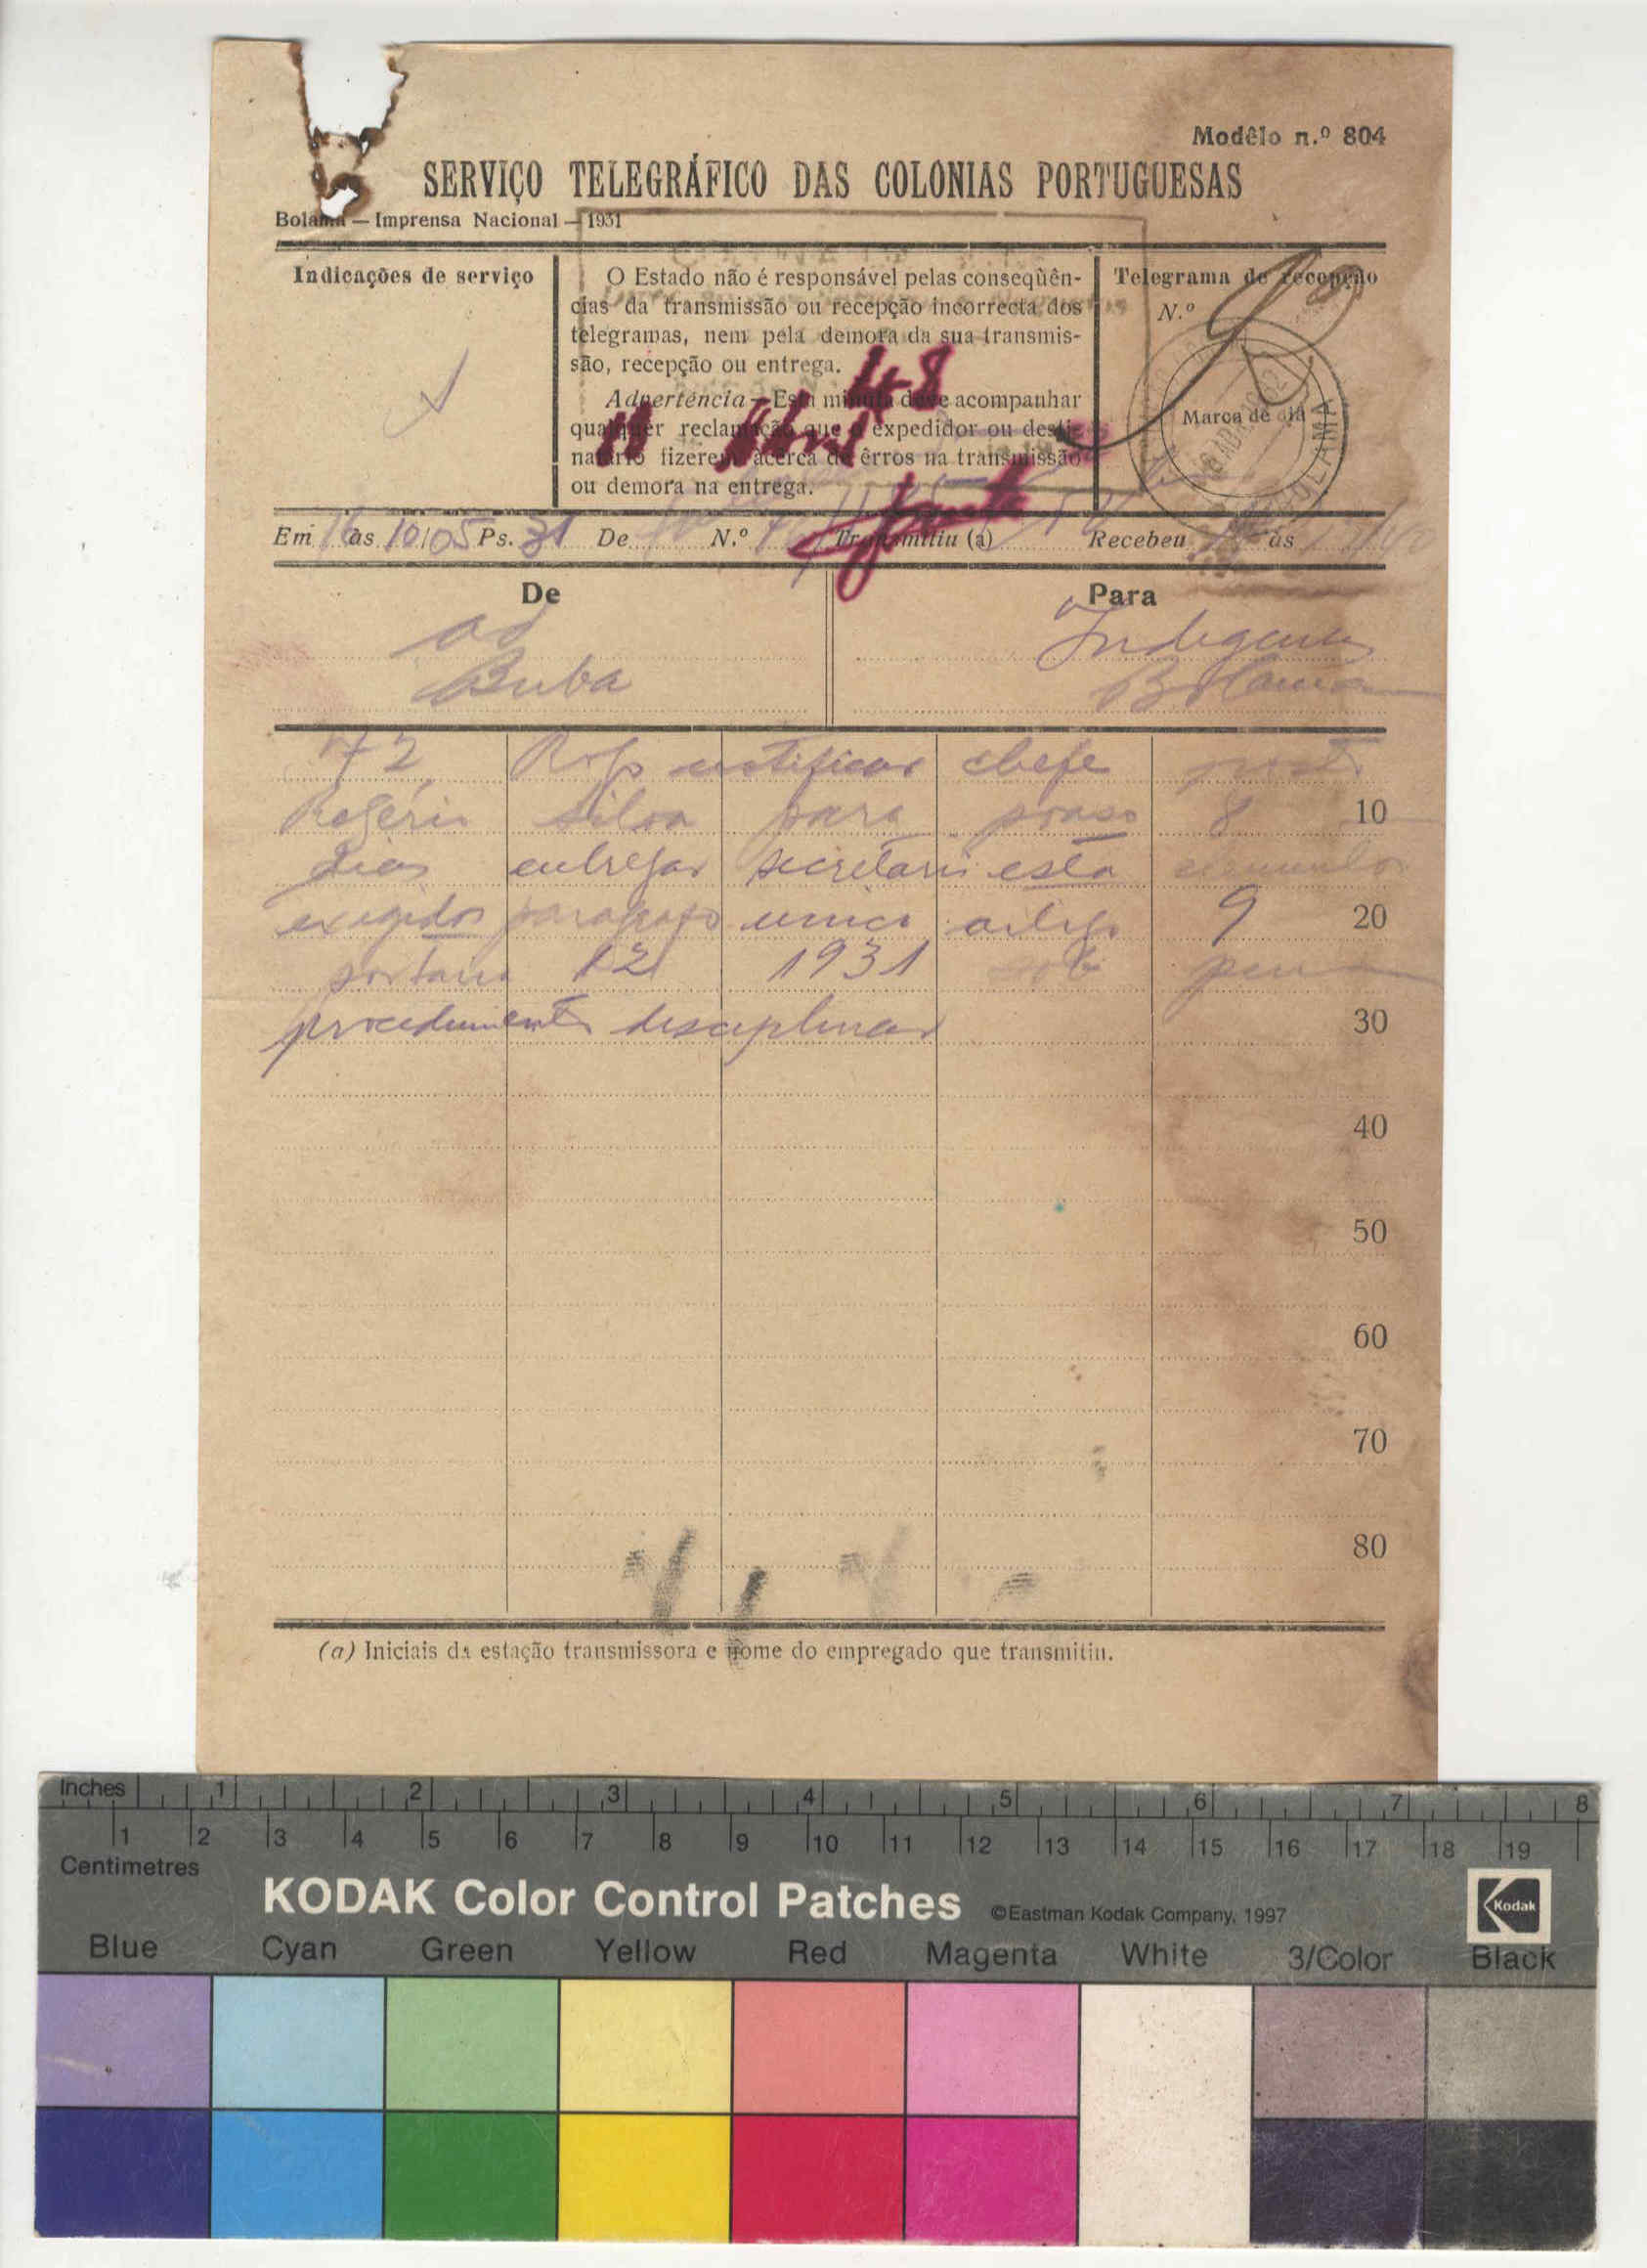 Modêlo n.º 804
SERVIÇO TELEGRÁFICO DAS COLONIAS PORTUGUESAS
Bolama — Imprensa Nacional — 1931
Indicações de serviço
O Estado não é responsável pelas conseqüên-
cias da transmissão ou recepção incorrecta dos
telegramas, nem pela demora da sua transmis-
são, recepção ou entrega.
Advertência — Esta minuta deve acompanhar
qualquer reclamação que o expedidor ou desti-
natário fizerem àcerca de êrros na transmissão
ou demora na entrega.
48
Telegrama de recepção
N.º
Marca de dia
BOLAMA
Em 16 às 10/05 Ps. 31 De N.º Transmitiu (a) Recebeu às
De
Para
Buba
Bolama
72 Rogo notificar chefe posto
Rogério Silva para praso 8 10
dias entregar secretaria esta
exigidos paragrafo unico artigo 9 20
portaria 12 1931 sob pena
procedimento disciplinar 30
40
50
60
70
80
(a) Iniciais da estação transmissora e nome do empregado que transmitiu.
Inches 1 2 3 4 5 6 7 8
1 2 3 4 5 6 7 8 9 10 11 12 13 14 15 16 17 18 19
Centimetres
KODAK Color Control Patches ©Eastman Kodak Company, 1997 Kodak
Blue Cyan Green Yellow Red Magenta White 3/Color Black